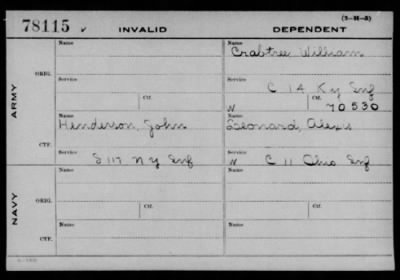 (3-H-3)
78115 ✓ INVALID DEPENDENT
Name Name
Crabtree William
ORIG.
Service Service
C 14 Ky Inf
Ctf. Ctf.
N 70530
ARMY
Name Name
Henderson, John Leonard, Alexis
CTF.
Service Service
S 117 N Y Inf N C 11 Ohio Inf
Name Name
NAVY
ORIG.
Ctf. Ctf.
Name Name
CTF.